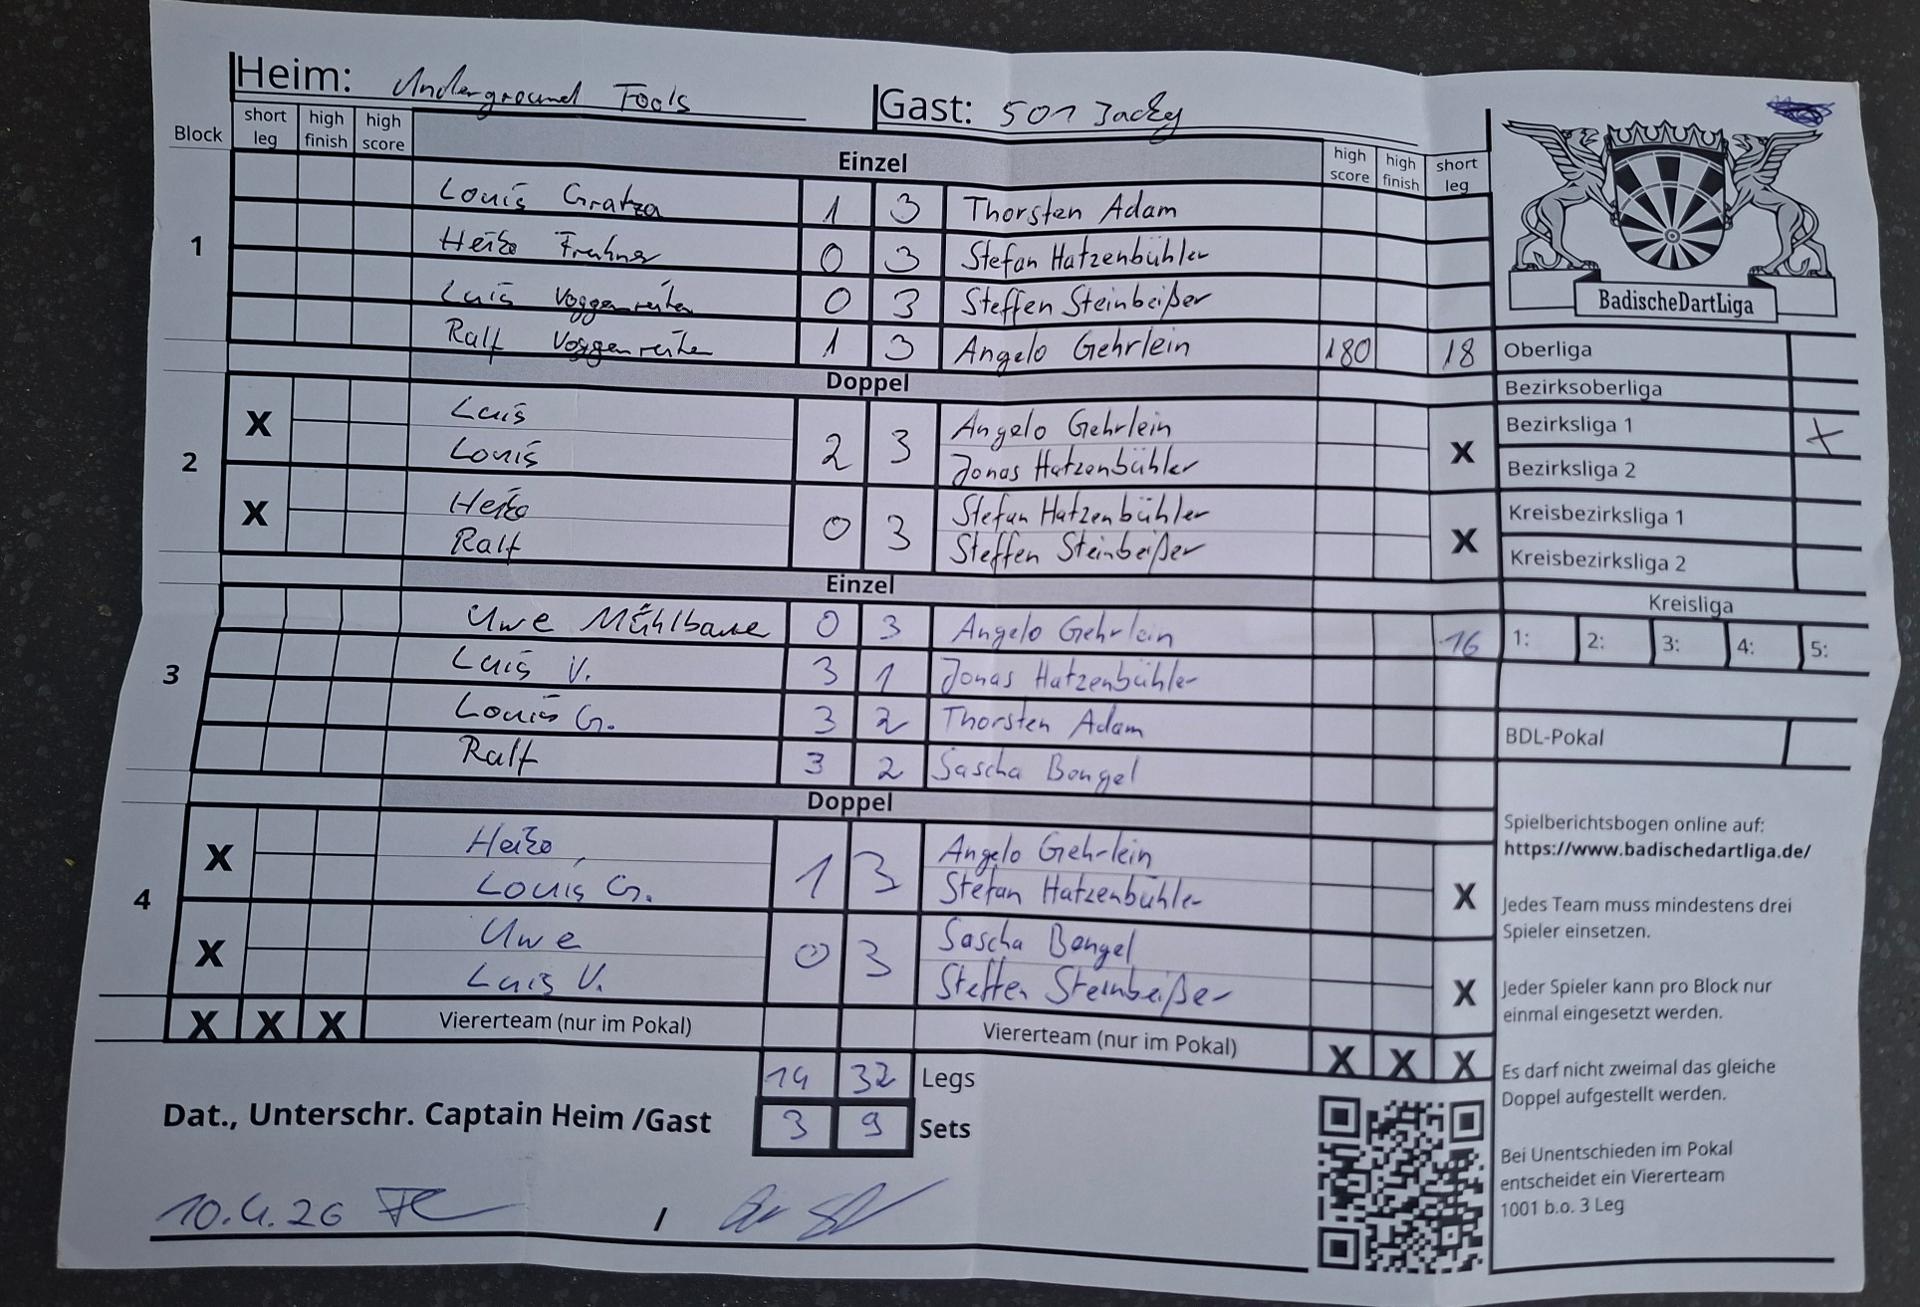 Heim: Underground Fools Gast: 501 Jacky
Block short leg high finish high score Einzel high score high finish short leg
1
Louis Gratza 1 3 Thorsten Adam
Heiko 0 3 Stefan Hatzenbühler
Luis Voggenreiter 0 3 Steffen Steinbeißer
Ralf Voggenreiter 1 3 Angelo Gehrlein 180 18
Doppel
2
X Luis 2 3 Angelo Gehrlein X
Louis Jonas Hatzenbühler
X Heiko 0 3 Stefan Hatzenbühler X
Ralf Steffen Steinbeißer
Einzel
3
Uwe Mühlbaue 0 3 Angelo Gehrlein 16
Luis V. 3 1 Jonas Hatzenbühler
Louis G. 3 2 Thorsten Adam
Ralf 3 2 Sascha Bengel
Doppel
4
X Heiko, 1 3 Angelo Gehrlein X
Louis G. Stefan Hatzenbühler
X Uwe 0 3 Sascha Bengel X
Luis V. Steffen Steinbeißer
X X X Viererteam (nur im Pokal) Viererteam (nur im Pokal) X X X
14 32 Legs
Dat., Unterschr. Captain Heim /Gast 3 9 Sets
10.4.26 /
BadischeDartLiga
Oberliga
Bezirksoberliga
Bezirksliga 1 X
Bezirksliga 2
Kreisbezirksliga 1
Kreisbezirksliga 2
Kreisliga
1: 2: 3: 4: 5:
BDL-Pokal
Spielberichtsbogen online auf:
https://www.badischedartliga.de/
Jedes Team muss mindestens drei
Spieler einsetzen.
Jeder Spieler kann pro Block nur
einmal eingesetzt werden.
Es darf nicht zweimal das gleiche
Doppel aufgestellt werden.
Bei Unentschieden im Pokal
entscheidet ein Viererteam
1001 b.o. 3 Leg